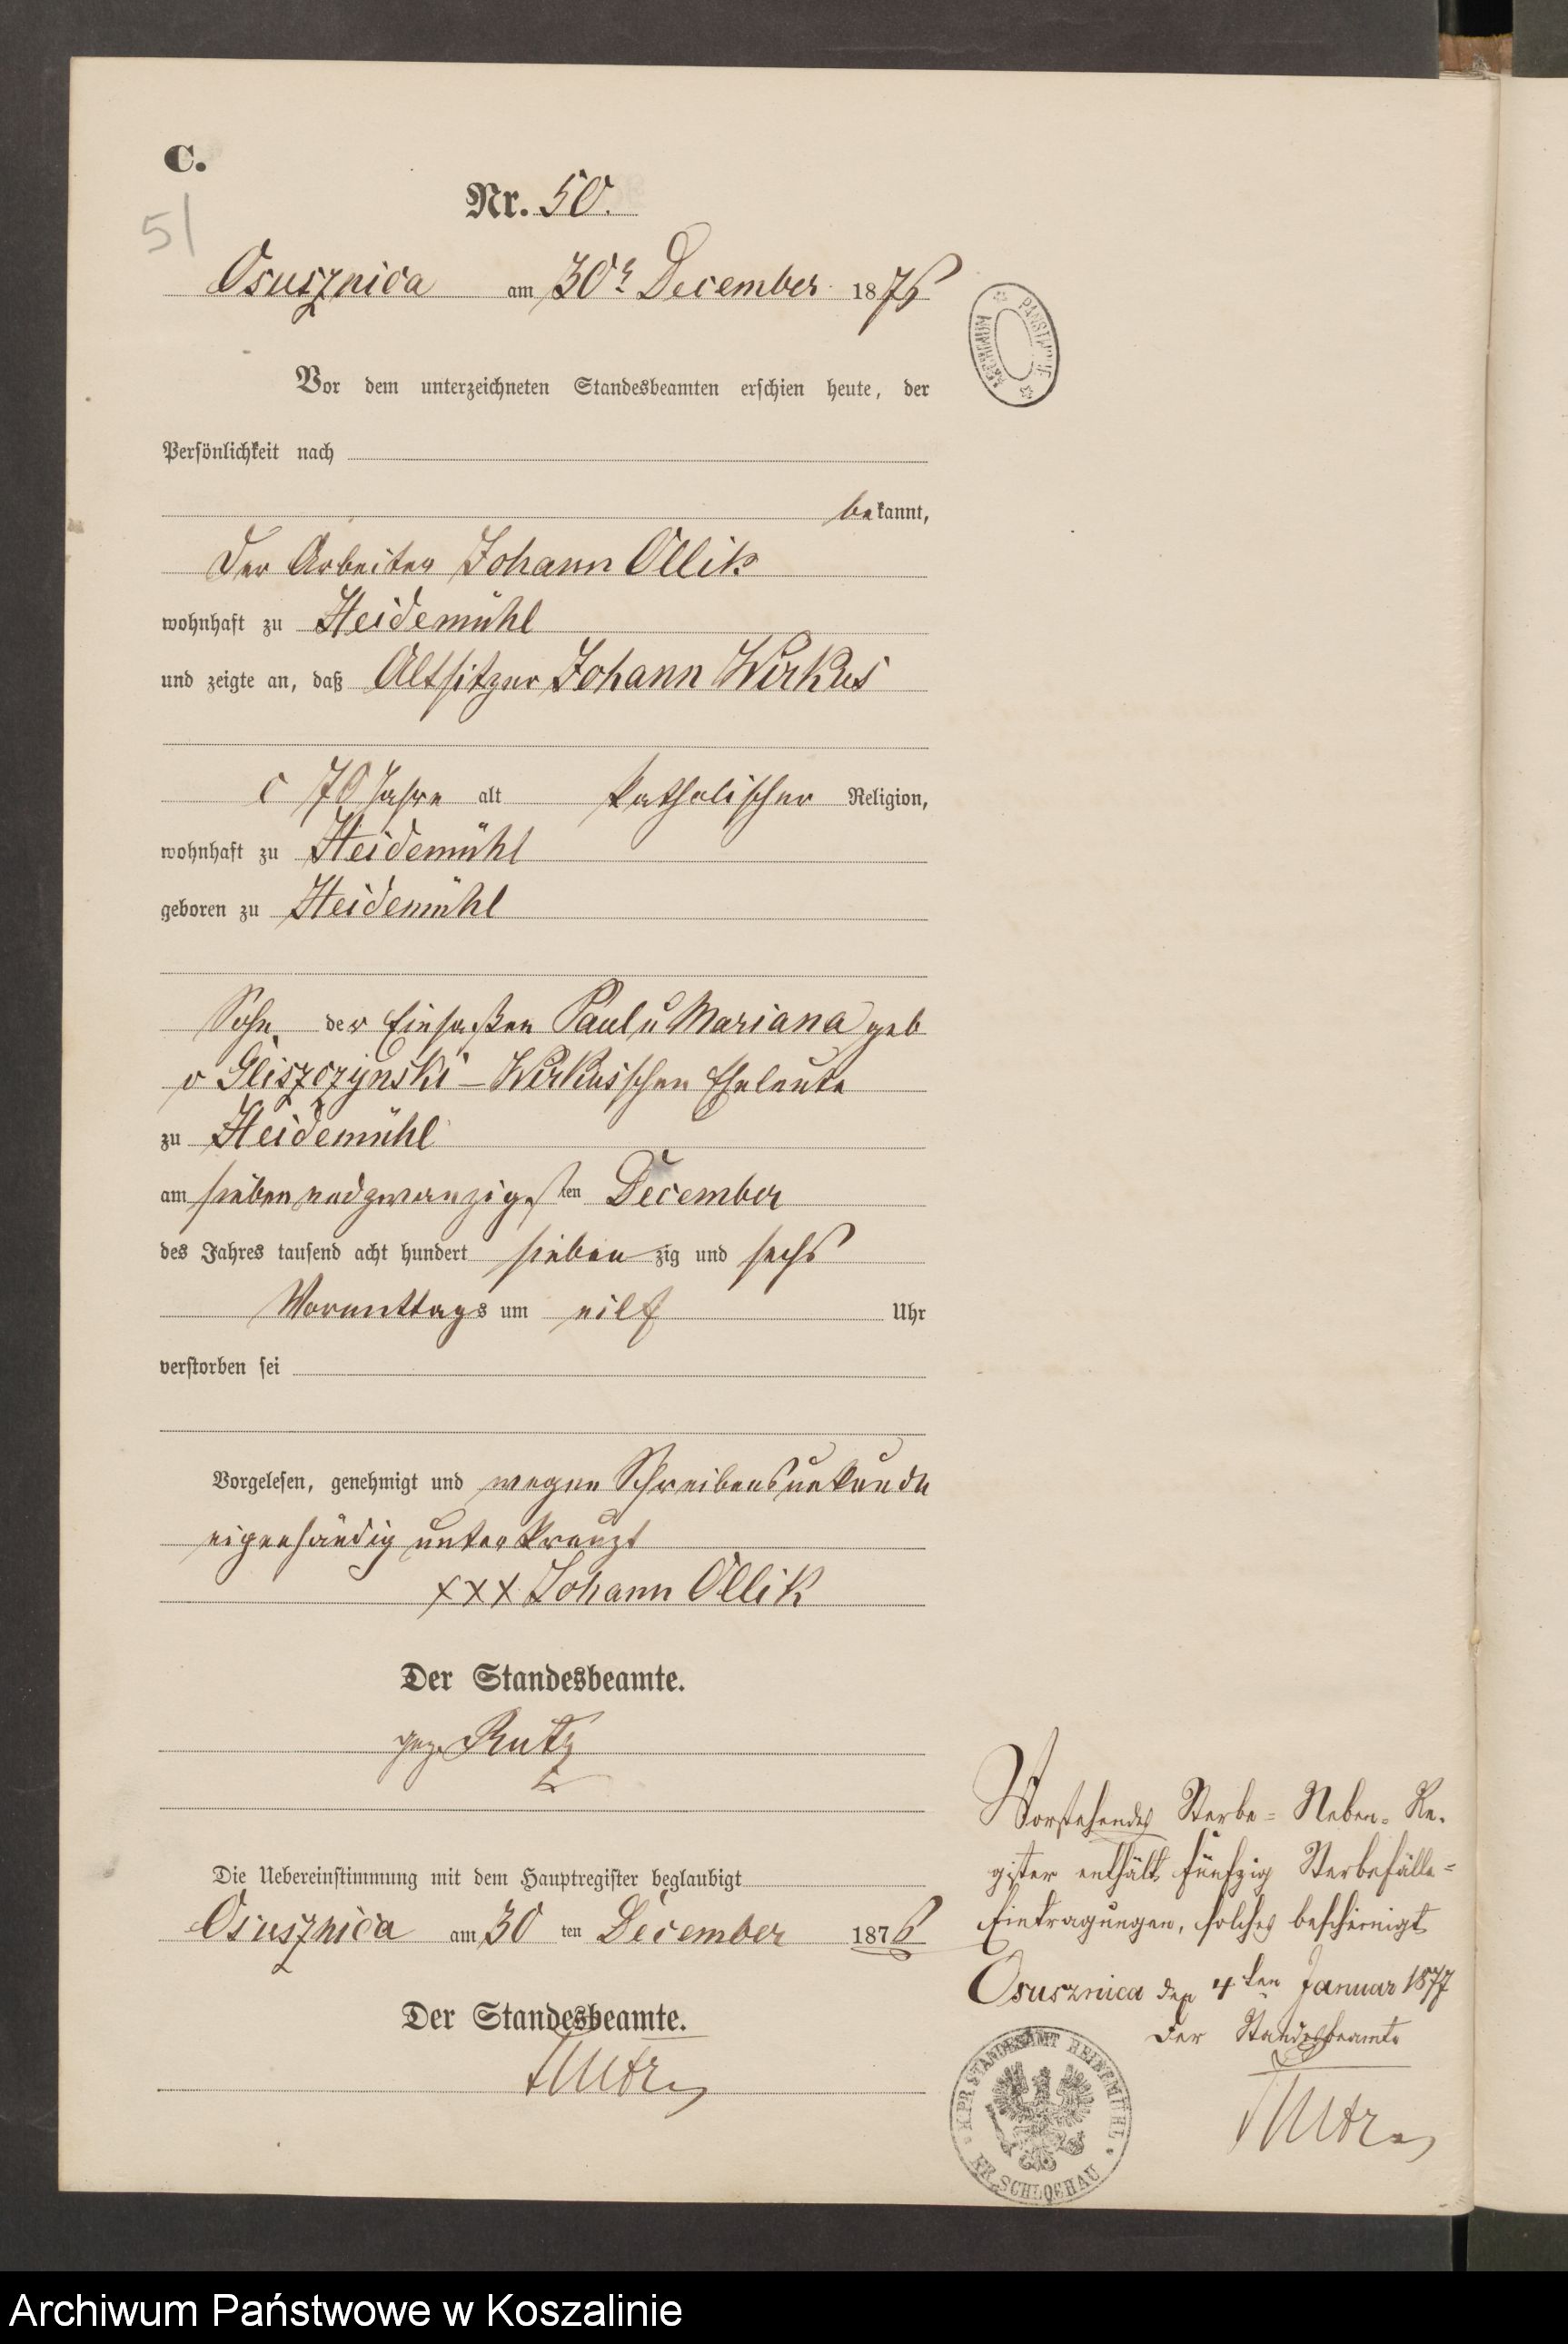 C.
Nr. 50.
51
Osusznica am 30t December 1876
Vor dem unterzeichneten Standesbeamten erschien heute, der
Persönlichkeit nach
bekannt,
Der Arbeiter Johann Ollik
wohnhaft zu Heidemühl
und zeigte an, daß Altsitzer Johann Wirkus
c 70 Jahre alt katholischer Religion,
wohnhaft zu Heidemühl
geboren zu Heidemühl
Sohn der Einsaßen Paul u Mariana geb
v Gliszczynski - Wirkusschen Eheleute
zu Heidemühl
am siebenundzwanzigsten December
des Jahres tausend acht hundert siebenzig und sechs
Vormittags um eilf Uhr
verstorben sei
Vorgelesen, genehmigt und wegen Schreibensunkunde
eigenhändig unterkreuzt
xxx Johann Ollik
Der Standesbeamte.
gez. Rutz
Die Uebereinstimmung mit dem Hauptregister beglaubigt
Osusznica am 30 ten December 1876
Der Standesbeamte.
Rutz
ARCHIWUM PAŃSTWOWE
Vorstehendes Sterbe- Neben- Re-
gister enthält fünfzig Sterbefälle-
Eintragungen, solches bescheinigt
Osusznica den 4ten Januar 1877
Der Standesbeamte
Rutz
K. PR. STANDESAMT HEIDEMÜHL
KR. SCHLOCHAU
Archiwum Państwowe w Koszalinie